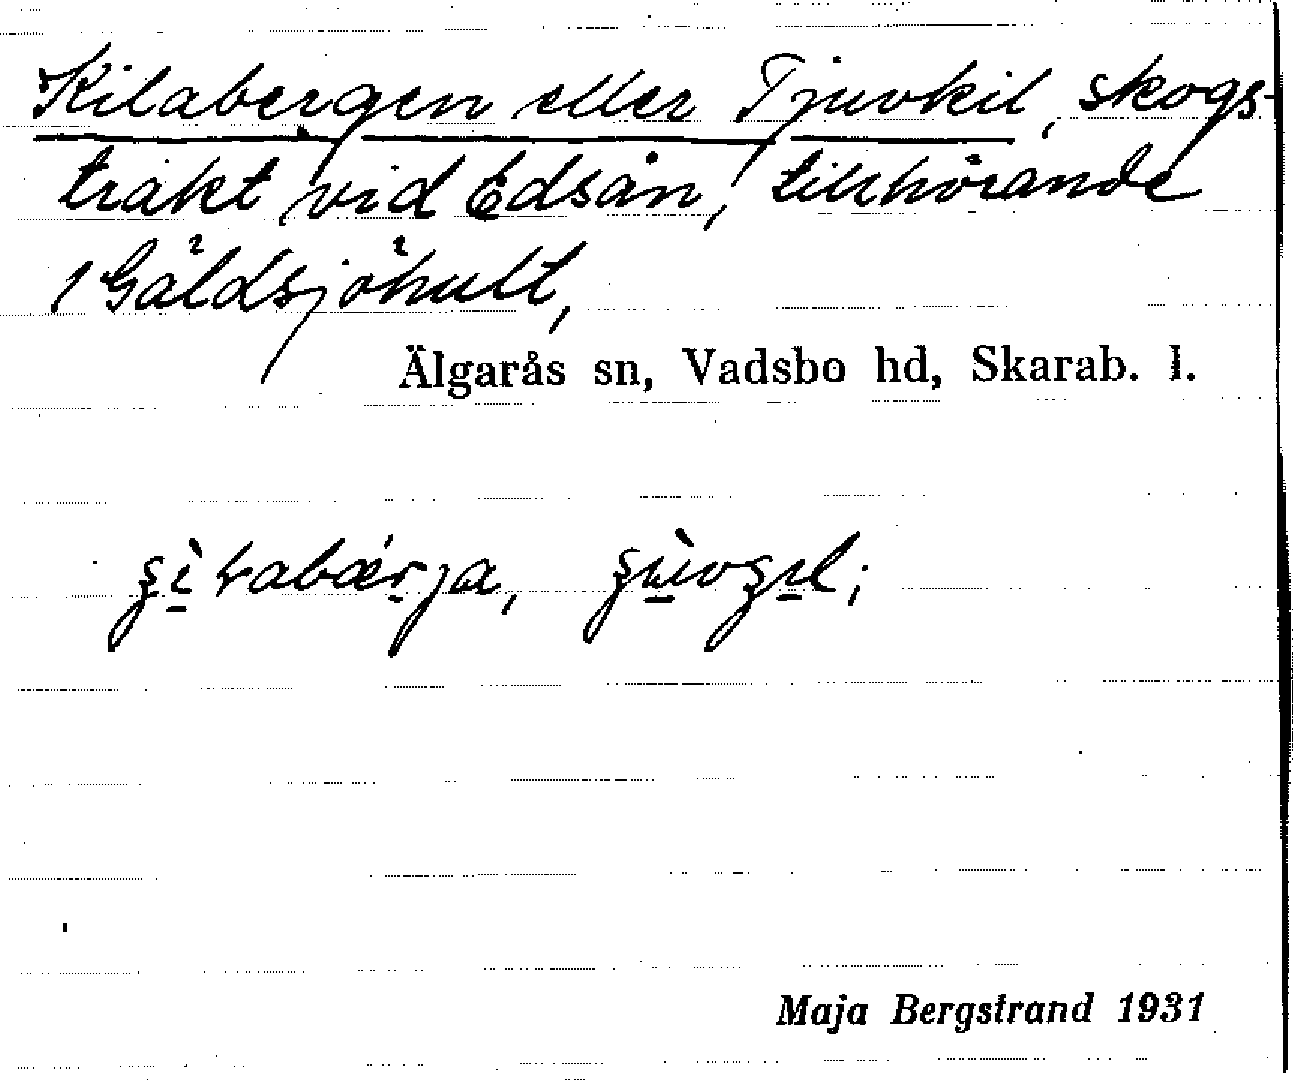 Kilabergen eller Tjuvkil, skogs-
trakt vid Edsån, tillhörande
1 Gäldsjöhult,
Älgarås sn, Vadsbo hd, Skarab. l.
Maja Bergstrand 1931